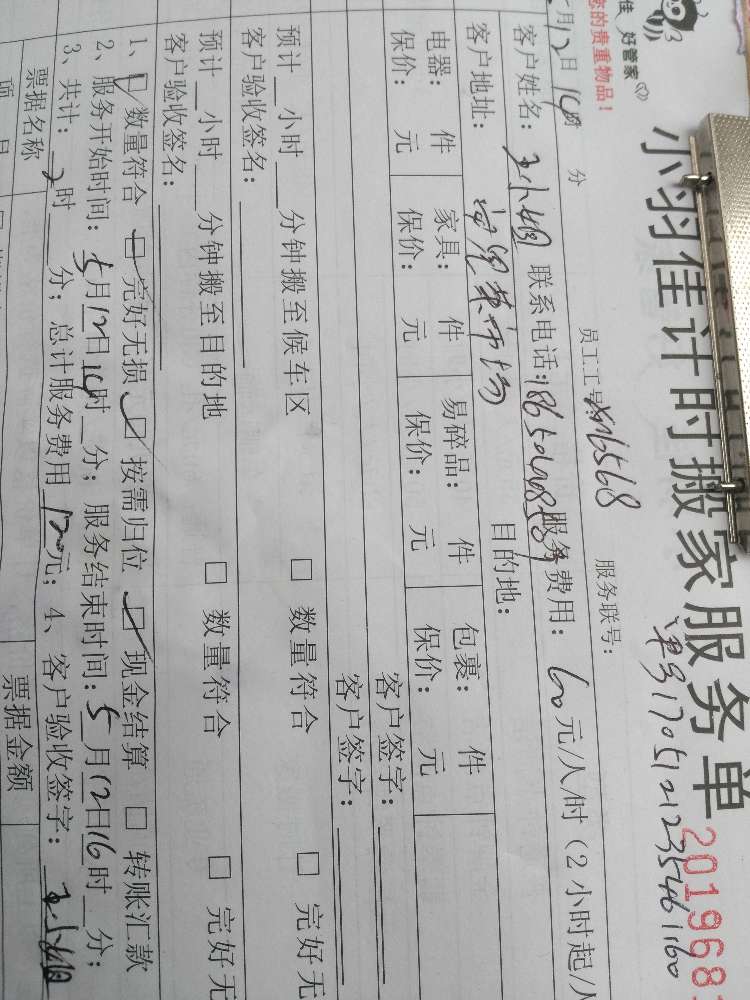 佳 好管家
您的贵重物品！
小羽佳计时搬家服务单
单号170512123546160
201968
员工工号：xm6568 服务联号：
月12日14时 分
客户姓名： 联系电话： 服务费用：60元/人/时（2小时起/人
客户地址： 目的地：
电器： 件 家具： 件 易碎品： 件 包裹： 件
保价： 元 保价： 元 保价： 元 保价： 元
客户签字：
客户签字：
预计__小时__分钟搬至候车区 □ 数量符合 □ 完好无
客户验收签名：
预计__小时__分钟搬至目的地 □ 数量符合 □ 完好无
客户验收签名：
1、☑ 数量符合 ☑ 完好无损 ☑ 按需归位 ☑ 现金结算 □ 转账汇款
2、服务开始时间：5月12日14时__分；服务结束时间：5月12日16时__分；
3、共计：2时__分；总计服务费用120元；4、客户验收签字：
票据名称 票据金额
项 目